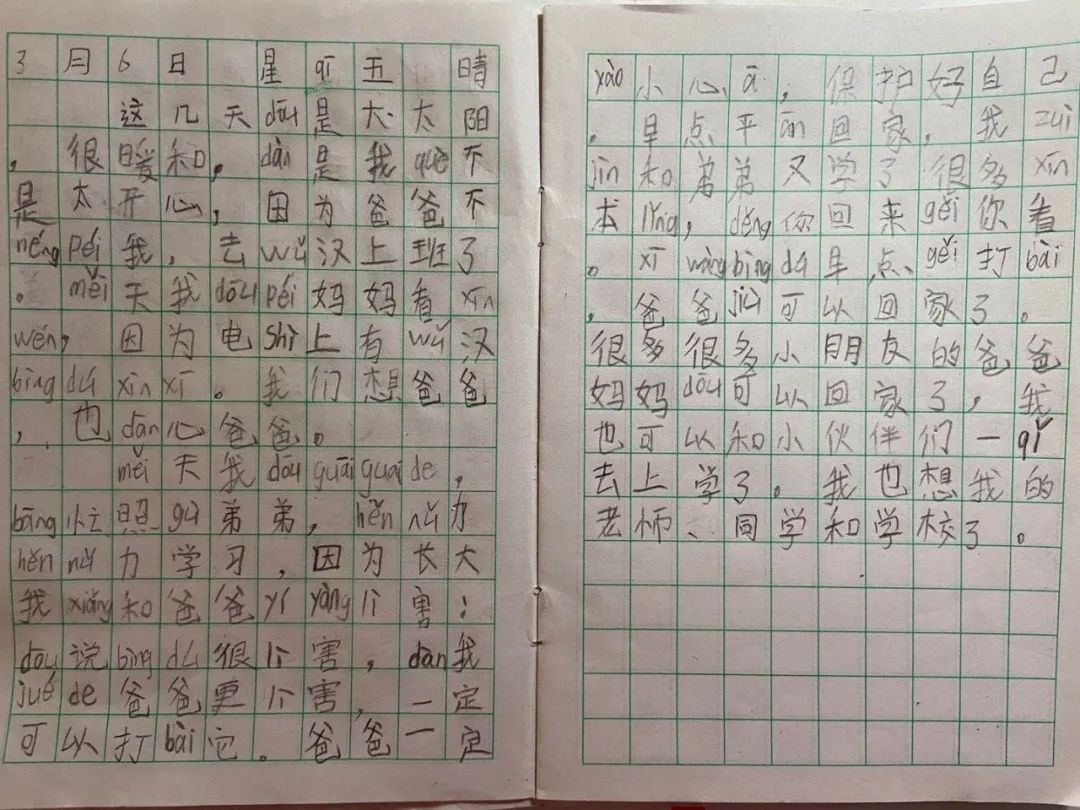 3月6日 星qī五 晴
这几天dōu是大太阳
，很暖和。dàn是我què不
是太开心，因为爸爸不
néng péi我，去wǔ汉上班了
。měi天我dōu péi妈妈看xīn
wén，因为电shì上有wǔ汉
bìng dú xìn xī。我们想爸爸
，也dān心爸爸。
měi天我dōu guāi guai de，
bāng忙照gù弟弟，hěn nǔ力
hěn nǔ力学习，因为长大
我xiǎng和爸爸yí yàng li害！
dōu说bìng dú很li害，dàn我
jué de爸爸更li害，一定
可以打bài它。爸爸一定
yào小心ā，保护好自己
。早点平ān回家，我zuì
jìn和弟弟又学了很多xīn
本lǐng，děng你回来gěi你看
。xī wàng bìng dú早点gěi打bài
，爸爸jiù可以回家了。
很多很多小朋友的爸爸
妈妈dōu可以回家了，我
也可以和小伙伴们一qǐ
去上学了。我也想我的
老师、同学和学校了。